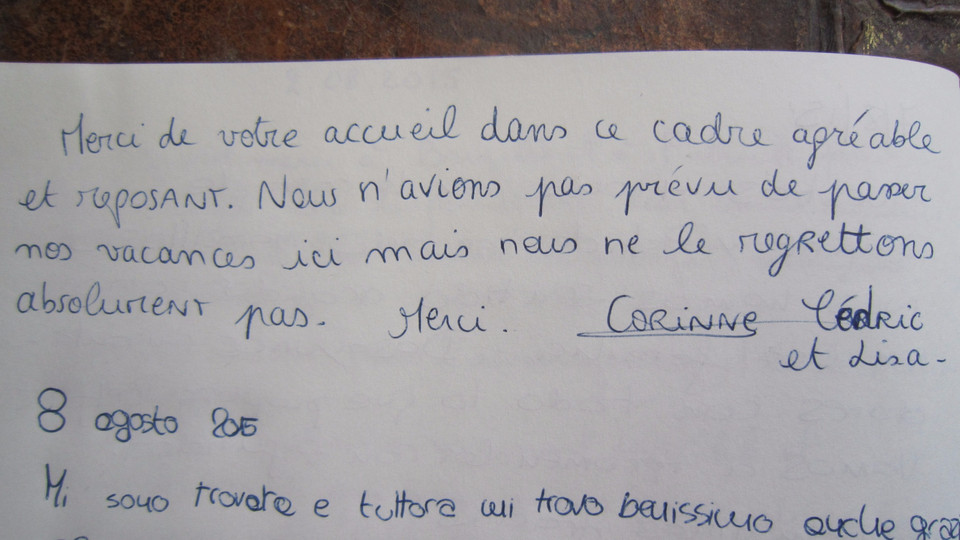 Merci de votre accueil dans ce cadre agréable
et reposant. Nous n'avions pas prévu de passer
nos vacances ici mais nous ne le regrettons
absolument pas. Merci. CORINNE Cédric
et Lisa-
8 agosto 2015
Mi sono trovata e tuttora mi trovo benissimo anche